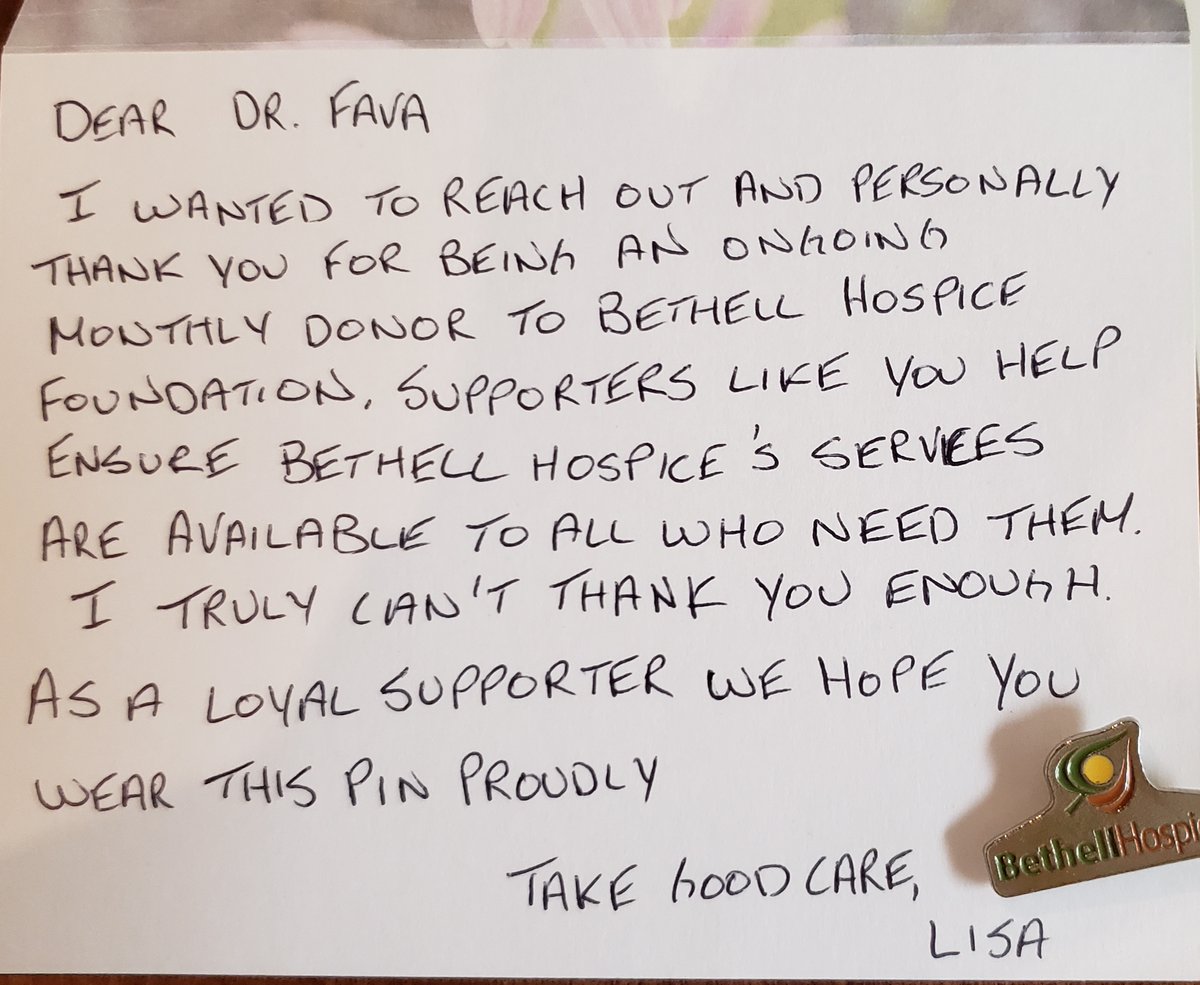 DEAR DR. FAVA
I WANTED TO REACH OUT AND PERSONALLY
THANK YOU FOR BEING AN ONGOING
MONTHLY DONOR TO BETHELL HOSPICE
FOUNDATION. SUPPORTERS LIKE YOU HELP
ENSURE BETHELL HOSPICE'S SERVICES
ARE AVAILABLE TO ALL WHO NEED THEM.
I TRULY CAN'T THANK YOU ENOUGH.
AS A LOYAL SUPPORTER WE HOPE YOU
WEAR THIS PIN PROUDLY
BethellHospi
TAKE GOOD CARE,
LISA